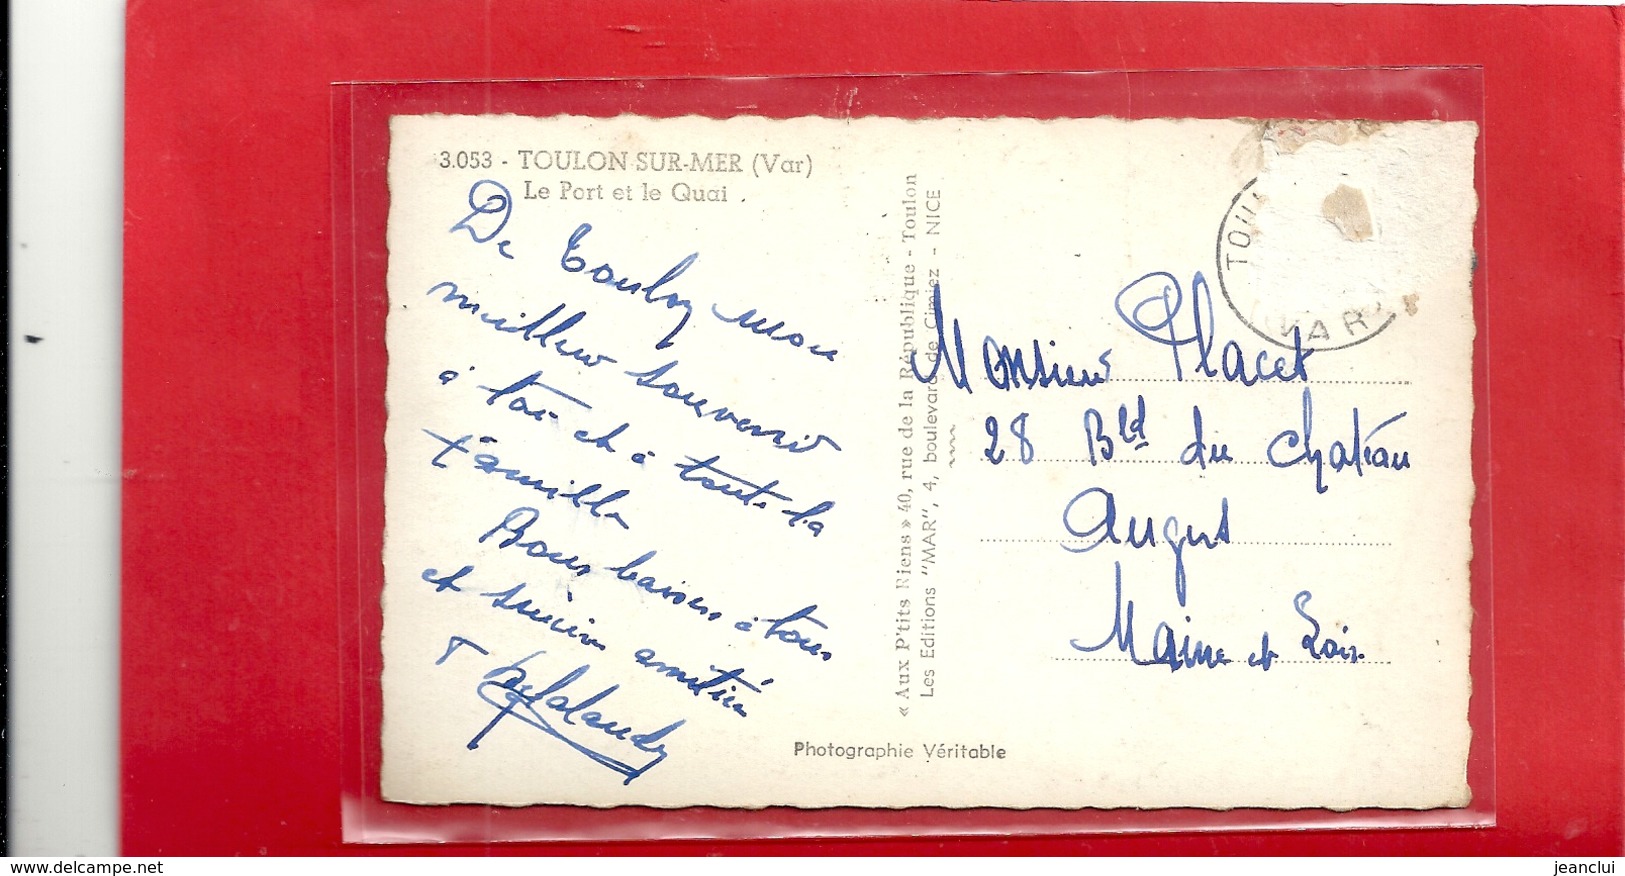 3.053 - TOULON-SUR-MER (Var)
Le Port et le Quai
De Toulon mon
meilleur souvenir
à toi et à toute la
famille
Bons baisers à tous
et sincère amitiés
« Aux P'tits Riens » 40, rue de la République - Toulon
Les Editions "MAR", 4, boulevard de Cimiez - NICE
TOUL
VAR
Monsieur Placet
28 Bld du Chateau
Angers
Maine et Loire
Photographie Véritable
jeanclui